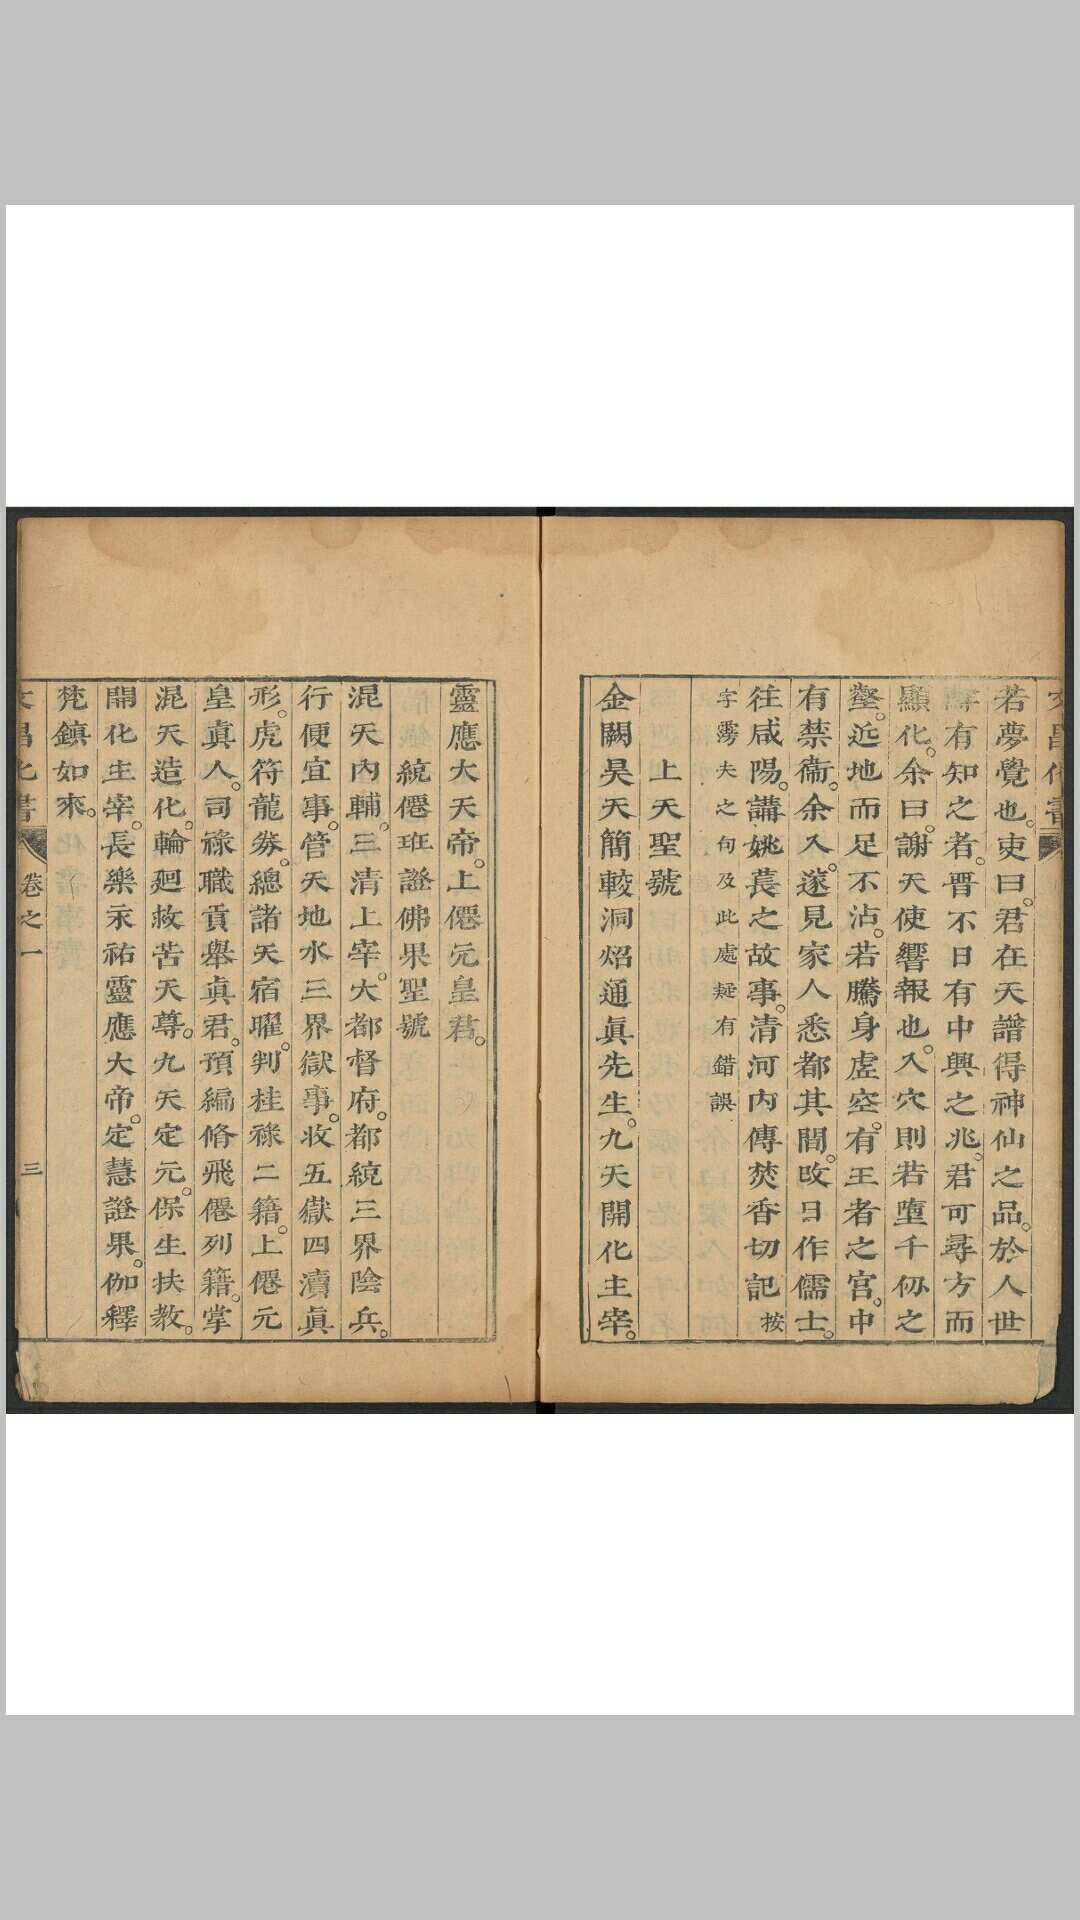 若夢覺也。吏曰。君在天譜得神仙之品。於人世
有知之者。晋不日有中興之兆。君可尋方而
顯化。余曰。謝天使響報也。入穴則若墮千仞之
壑。近地而足不沾。若騰身虛空。有王者之宮。中
有禁衞。余入。遂見家人悉都其間。改日作儒士。
往咸陽。講姚萇之故事。清河内傳焚香切記按
字雱夫之句及此處疑有錯誤
上天聖號
金闕昊天簡較洞炤通眞先生。九天開化主宰。
靈應大天帝。上僊元皇君。
統僊班證佛果聖號
混天內輔。三清上宰。大都督府。都統三界陰兵。
行便宜事。管天地水三界獄事。收五嶽四瀆眞
形。虎符龍券。總諸天宿曜。判桂祿二籍。上僊元
皇眞人。司祿職貢舉眞君。預編脩飛僊列籍。掌
混天造化。輪廻救苦天尊。九天定元。保生扶教。
開化主宰。長樂永祐靈應大帝。定慧證果。伽釋
梵鎮如來。
文昌化書 卷之一 三